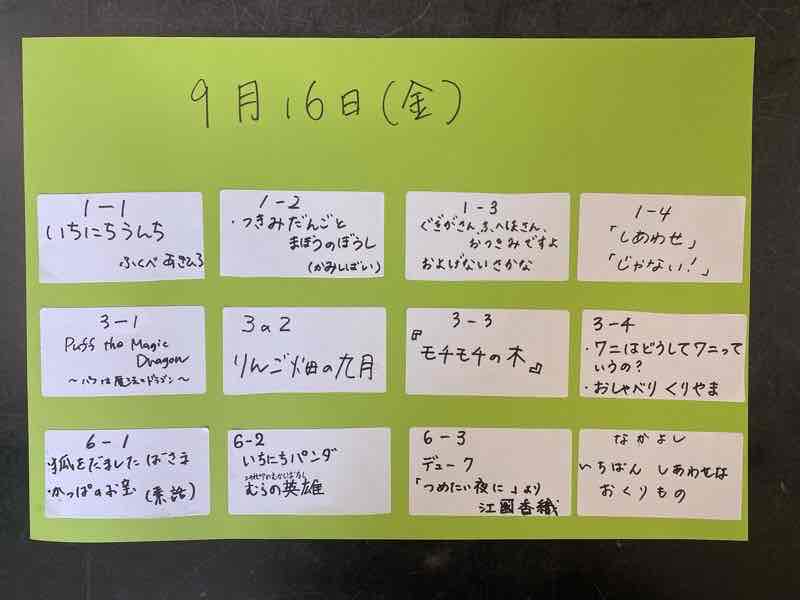 9月16日(金)
1-1
いちにちうんち
ふくべ あきひろ
1-2
・つきみだんごと
まほうのぼうし
(かみしばい)
1-3
ぐぎがさん、ふへほさん、
おつきみですよ
およげないさかな
1-4
「しあわせ」
「じゃない!」
3-1
Puff the Magic
Dragon
〜パフは魔法のドラゴン〜
3の2
りんご畑の九月
3-3
『モチモチの木』
3-4
・ワニはどうしてワニって
いうの?
・おしゃべりくりやま
6-1
・狐をだましたばさま
・かっぱのお宝 (素話)
6-2
いちにちパンダ
むらの英雄
6-3
デューク
「つめたい夜に」より
江國香織
なかよし
いちばん しあわせな
おくりもの